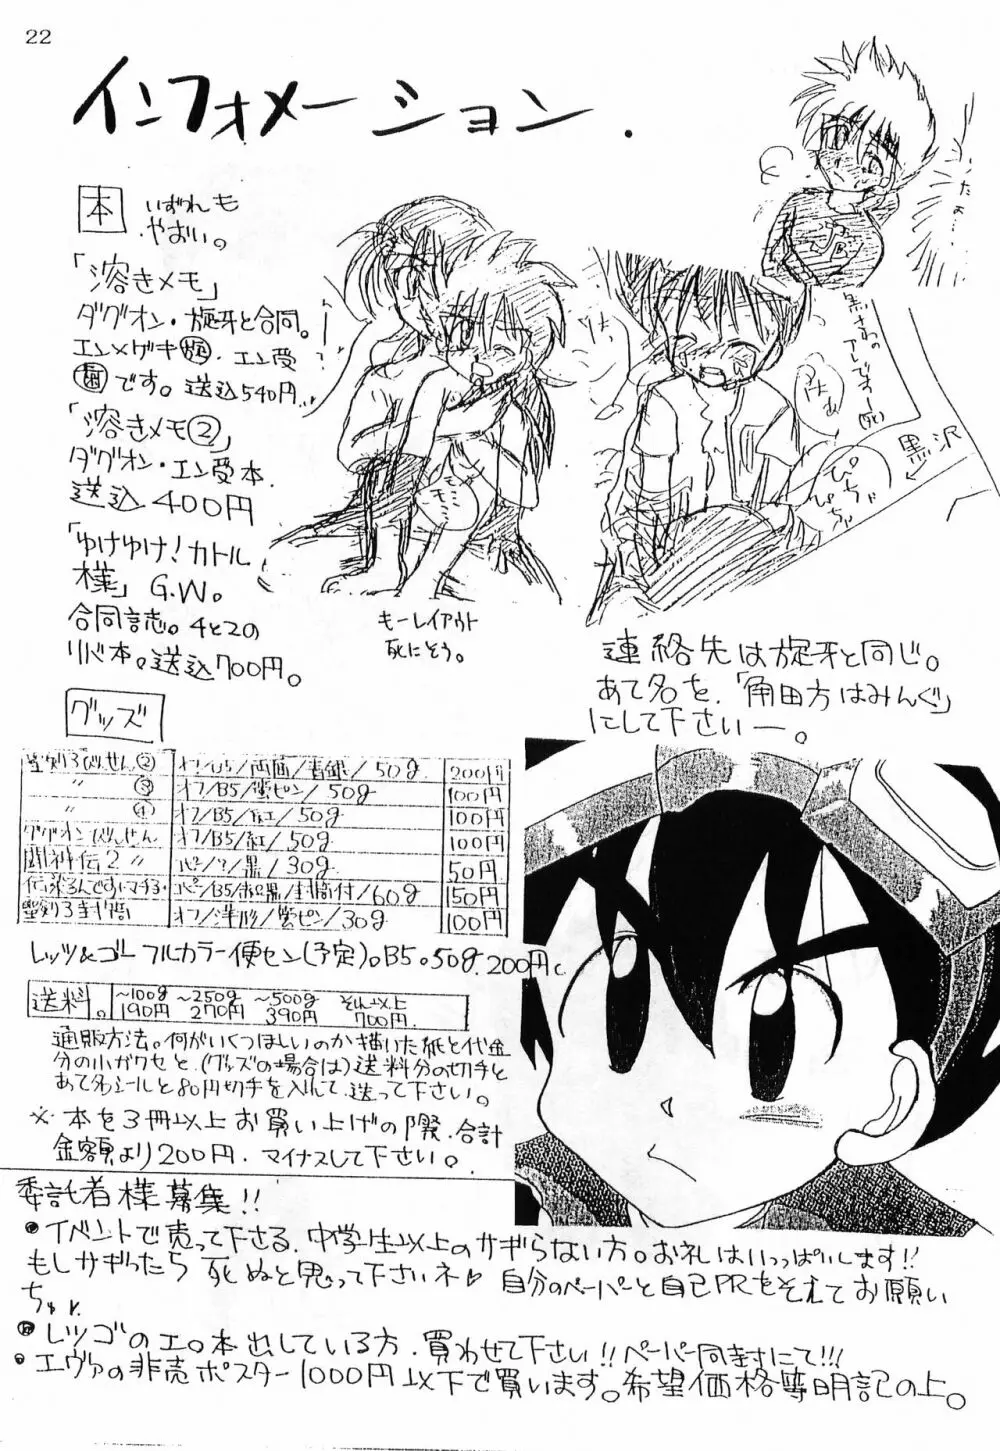 22
インフォメーション.
本 いずれも
やおい。
「溶きメモ」
ダグオン・旋牙と合同。
エン×ゲキ
エン受
です。送込540円
「溶きメモ②」
ダグオン・エン受本.
送込400円
「ゆけゆけ!カトル
様」G.W。
合同誌。4と2の
リバ本。送込700円。
モミモミ
もーレイアウト
死にそう。
黒さわの
アレでーす(死)
黒沢
ぴちゃ
ぴちゃ
連絡先は旋牙と同じ。
あて名を、「角田方はみんぐ」
にして下さいー。
グッズ
聖剣3びんせん② オフ/B5/両面/青銀/50g. 200円
〃 ③ オフ/B5/蛍ピン/50g 100円
〃 ④ オフ/B5/紅/50g 100円
ダグオンびんせん オフ/B5/紅/50g 100円
闘神伝2 〃 コピー/?/黒/30g 50円
コピー/B5/赤黒/封筒付/60g 150円
聖剣3封筒 オフ/洋形/蛍ピン/30g 100円
レッツ&ゴー フルカラー便セン(予定)。B5。50g. 200円
送料。 ~100g 190円 ~250g 270円 ~500g 390円 それ以上 700円
通販方法。何がいくつほしいのか描いた紙と代金
分の小ガワセと、(グッズの場合は)送料分の切手と
あて名シールと80円切手を入れて送って下さい。
※本を3冊以上お買い上げの際、合計
金額より200円、マイナスして下さい。
委託者様募集!!
●イベントで売って下さる、中学生以上のサギらない方。お礼はいっぱいします!!
もしサギったら死ぬと思って下さいネ♡ 自分のペーパーと自己PRをそえてお願い
ちゅ。
●レツゴのエロ本出している方、買わせて下さい!!ペーパー同封にて!!!
●エヴァの非売ポスター1000円以下で買います。希望価格等明記の上。